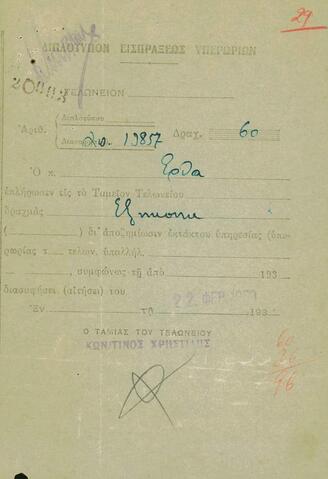 29
ΔΙΠΛΟΤΥΠΟΝ ΕΙΣΠΡΑΞΕΩΣ ΥΠΕΡΩΡΙΩΝ
ΤΕΛΩΝΕΙΟΝ
Διπλοτύπου
Ἀριθ. Δραχ. 60
19857
Ὁ κ. Ἔρθα
ἐπλήρωσεν εἰς τὸ Ταμεῖον Τελωνείου
δραχμὰς Ἑξήκοντα
( ) δι' ἀποζημίωσιν ἐκτάκτου ὑπηρεσίας (ὑπε-
ρωρίας τ. τελων. ὑπαλλήλ.
, συμφώνως τῇ ἀπὸ 193
διασαφήσει (αἰτήσει) του
Ἐν τῇ 22 ΦΕΒ 193
Ο ΤΑΜΙΑΣ ΤΟΥ ΤΕΛΩΝΕΙΟΥ
ΚΩΝ/ΤΙΝΟΣ ΧΡΗΣΤΙΔΗΣ
60
26